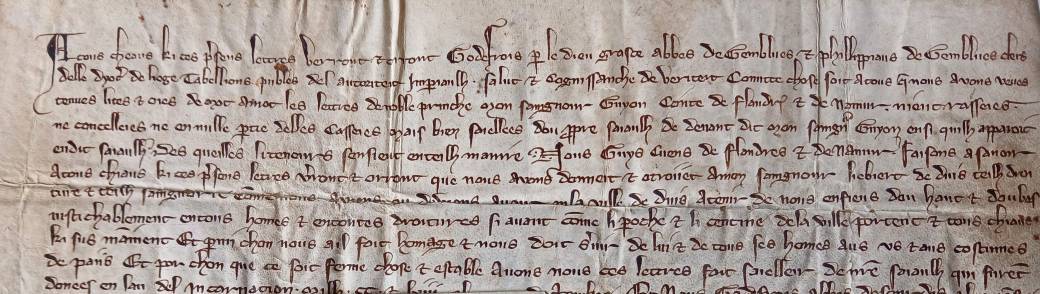 A tous cheaus ki ces pñsens lettres verront et oront Godefrois p le dieu grasce abbes de Gemblues et phillippians de Gemblues clers
delle dyoc de liege Tabellions publes del autoriteit Imperiaulh salut et cognissanche de veriteit Connute chose soit a tous q nous avons veues
tenues lites et oies de mot a mot les lettres de noble prinche mon saingnour Guyon Conte de flandres et de Namur nient rasseies
ne concelleies ne en nulle ptie delles casseies mais bien saiellees dou ppre saiaulh de devant dit mon saingnr Guyon ensi quilh apparoit
en dit saiaulh des queilles li tenours sensieut en teilh maniere Nous Guys Cuens de flandres et de Namur faisons a savoir
A tous cheaus ki ces psens letres vront et orront que nous avons donneit et otroiiet a mon saingnour liebiert de duis teilh droi
ture et teilh saingnorie côme nous avons en la ville de duis a tenir de nous en fies dou haut et dou bas
iustichablement en tous homes et en toutes droitures si avant come li poche et li centine de la ville portent et tous cheaus
ki sus mainent Et p mi chou nous a il fait homage et nous doit svir de lui et de tous ses homes aus us et aus costumes
de pais Et por chou que ce soit ferme chose et estable Avons nous ces lettres fait saieller de nre saiaulh qui furet
donees en lan del Incarnation